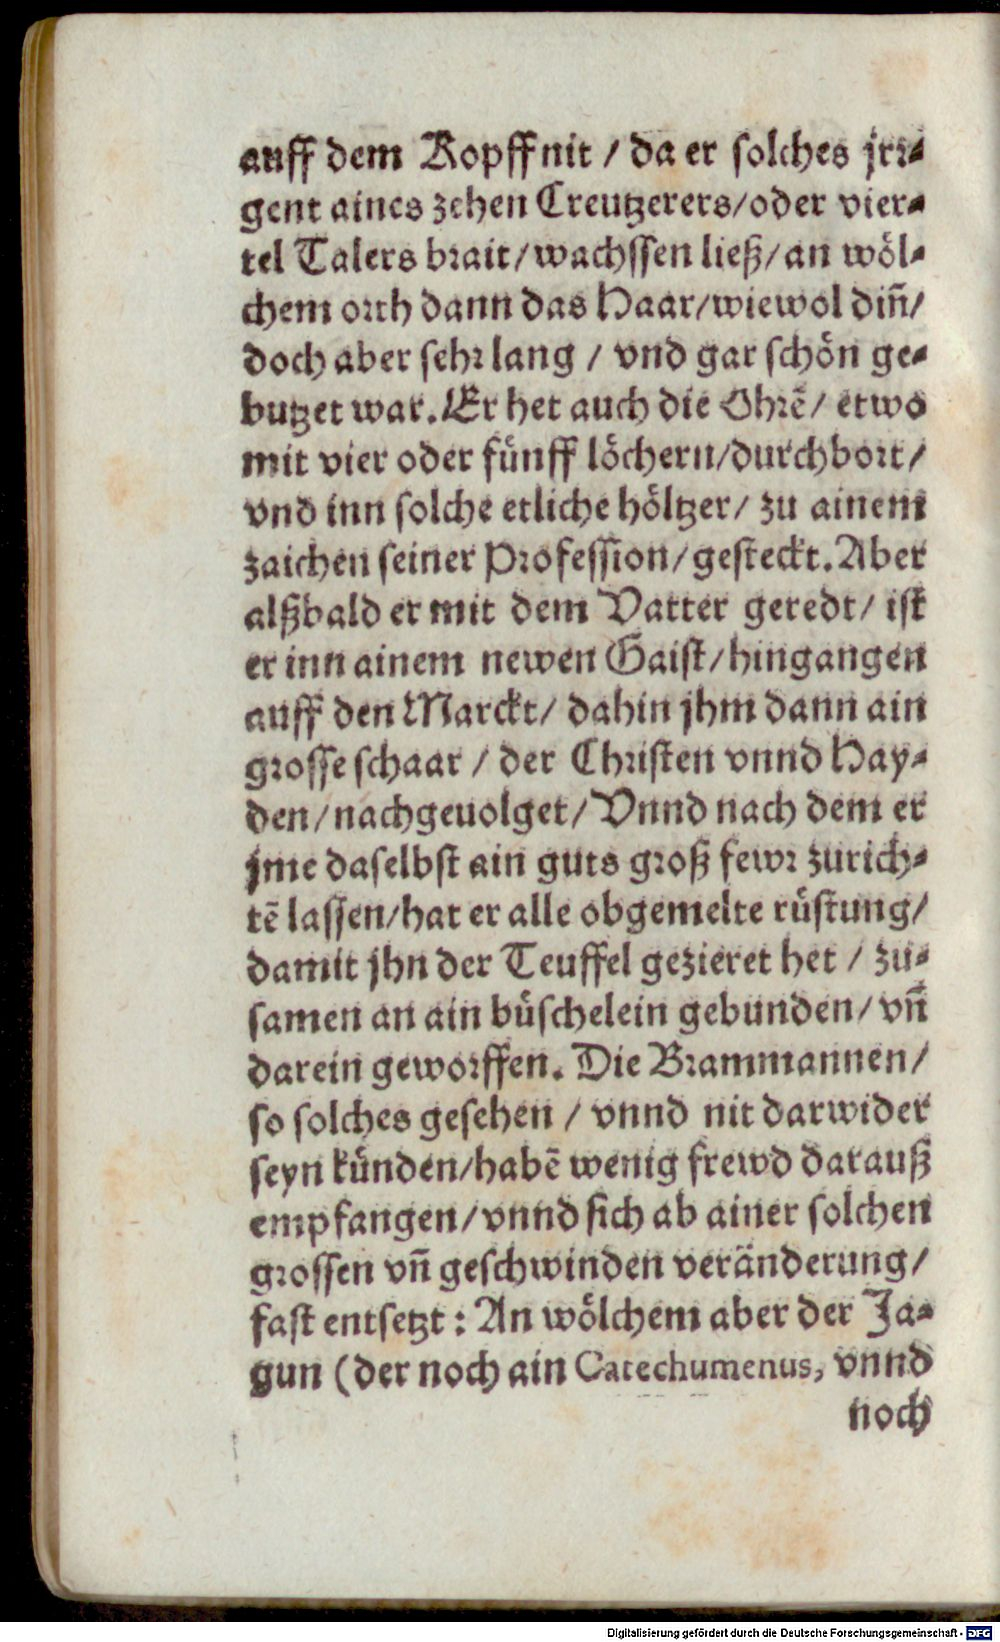 auff dem Kopff nit / da er solches jrr⸗
gent aines zehen Creutzerers/oder vier⸗
tel Talers brait/wachssen ließ/an wöl⸗
chem orth dann das Haar/wiewol diñ/
doch aber sehr lang / vnd gar schön ge⸗
butzet war. Er het auch die Ohrẽ/ etwo
mit vier oder fünff löchern/durchbort/
vnd inn solche etliche höltzer/ zu ainem
zaichen seiner Profession/gesteckt. Aber
alßbald er mit dem Vatter geredt/ ist
er inn ainem newen Gaist/hingangen
auff den Marckt/ dahin jhm dann ain
grosse schaar / der Christen vnnd Hay⸗
den/nachgeuolget/Vnnd nach dem er
jme daselbst ain guts groß fewr zurich⸗
tẽ lassen/hat er alle obgemelte rüstung/
damit jhn der Teuffel gezieret het / zu⸗
samen an ain büschelein gebunden/ vñ
darein geworffen. Die Brammannen/
so solches gesehen / vnnd nit darwider
seyn künden/habẽ wenig frewd darauß
empfangen/vnnd sich ab ainer solchen
grossen vñ geschwinden veränderung/
fast entsetzt : An wölchem aber der Ja⸗
gun (der noch ain Catechumenus, vnnd
noch
Digitalisierung gefördert durch die Deutsche Forschungsgemeinschaft - DFG